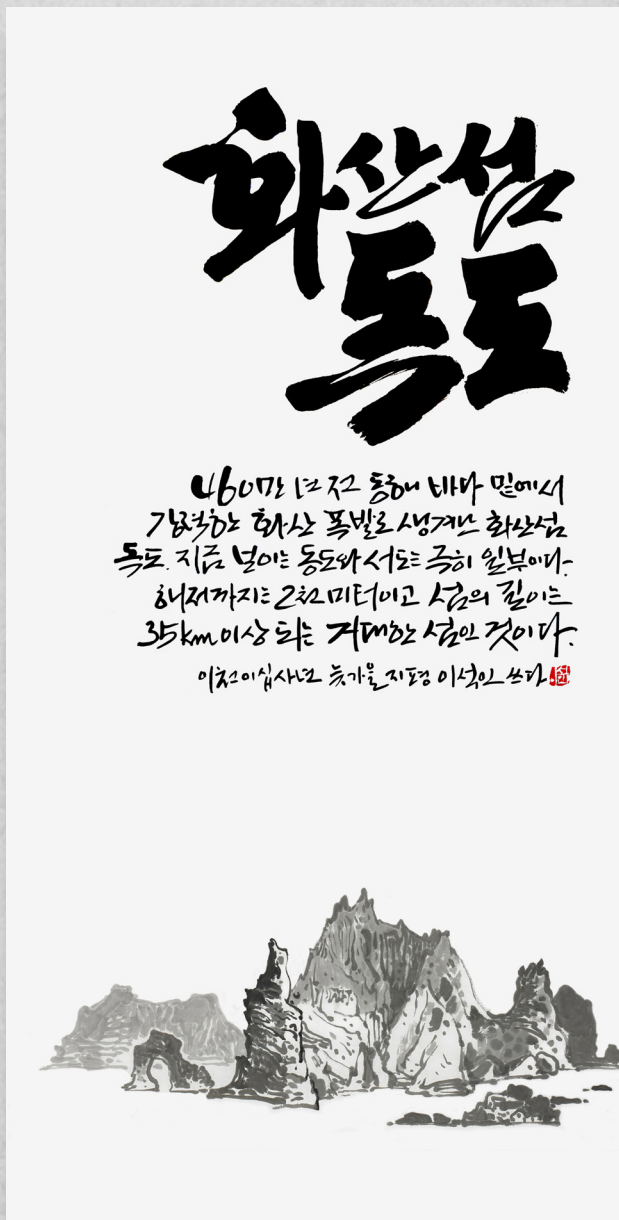 화산섬
독도
460만 년 전 동해 바다 밑에서
강력한 화산 폭발로 생겨난 화산섬
독도. 지금 보이는 동도와 서도는 극히 일부이다.
해저까지는 2천미터이고 섬의 길이는
35km이상 되는 거대한 섬인 것이다.
이천이십사년 늦가을 지평 이석인 쓰다